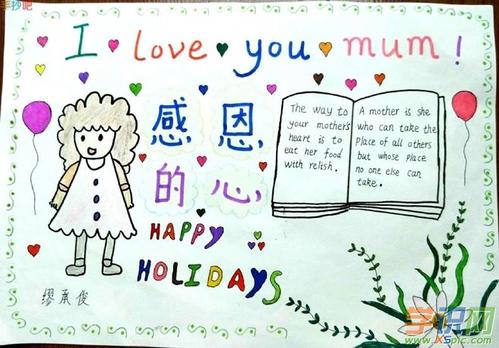 手抄吧
I love you mum!
感恩
的心
HAPPY
HOLIDAYS
The way to
your mother's
heart is to
eat her food
with relish.
A mother is she
who can take the
Place of all others
but whose place
no one else can
take.
缪承俊
手识网
www.X5pic.com